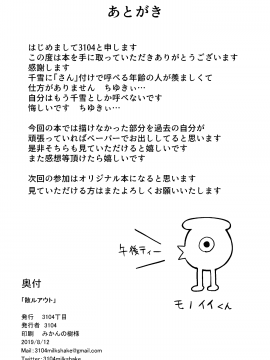 あとがき
はじめまして3104と申します
この度は本を手に取っていただきありがとうございます
感謝します
千雪に「さん」付けで呼べる年齢の人が羨ましくて
仕方がありません　ちゆきぃ…
自分はもう千雪としか呼べないです
悔しいです　ちゆきぃ…
今回の本では描けなかった部分を過去の自分が
頑張っていればペーパーでお出ししてると思います
是非そちらも見ていただけると嬉しいです
また感想等頂けたら嬉しいです
次回の参加はオリジナル本になると思います
見ていただける方はまたよろしくお願いいたします
午後ティー
モノイイくん
奥付
発行　3104丁目
発行者　3104
印刷　みかんの樹様
2019/8/12
Mail:3104milkshake@gmail.com
Twitter:3104milkshake